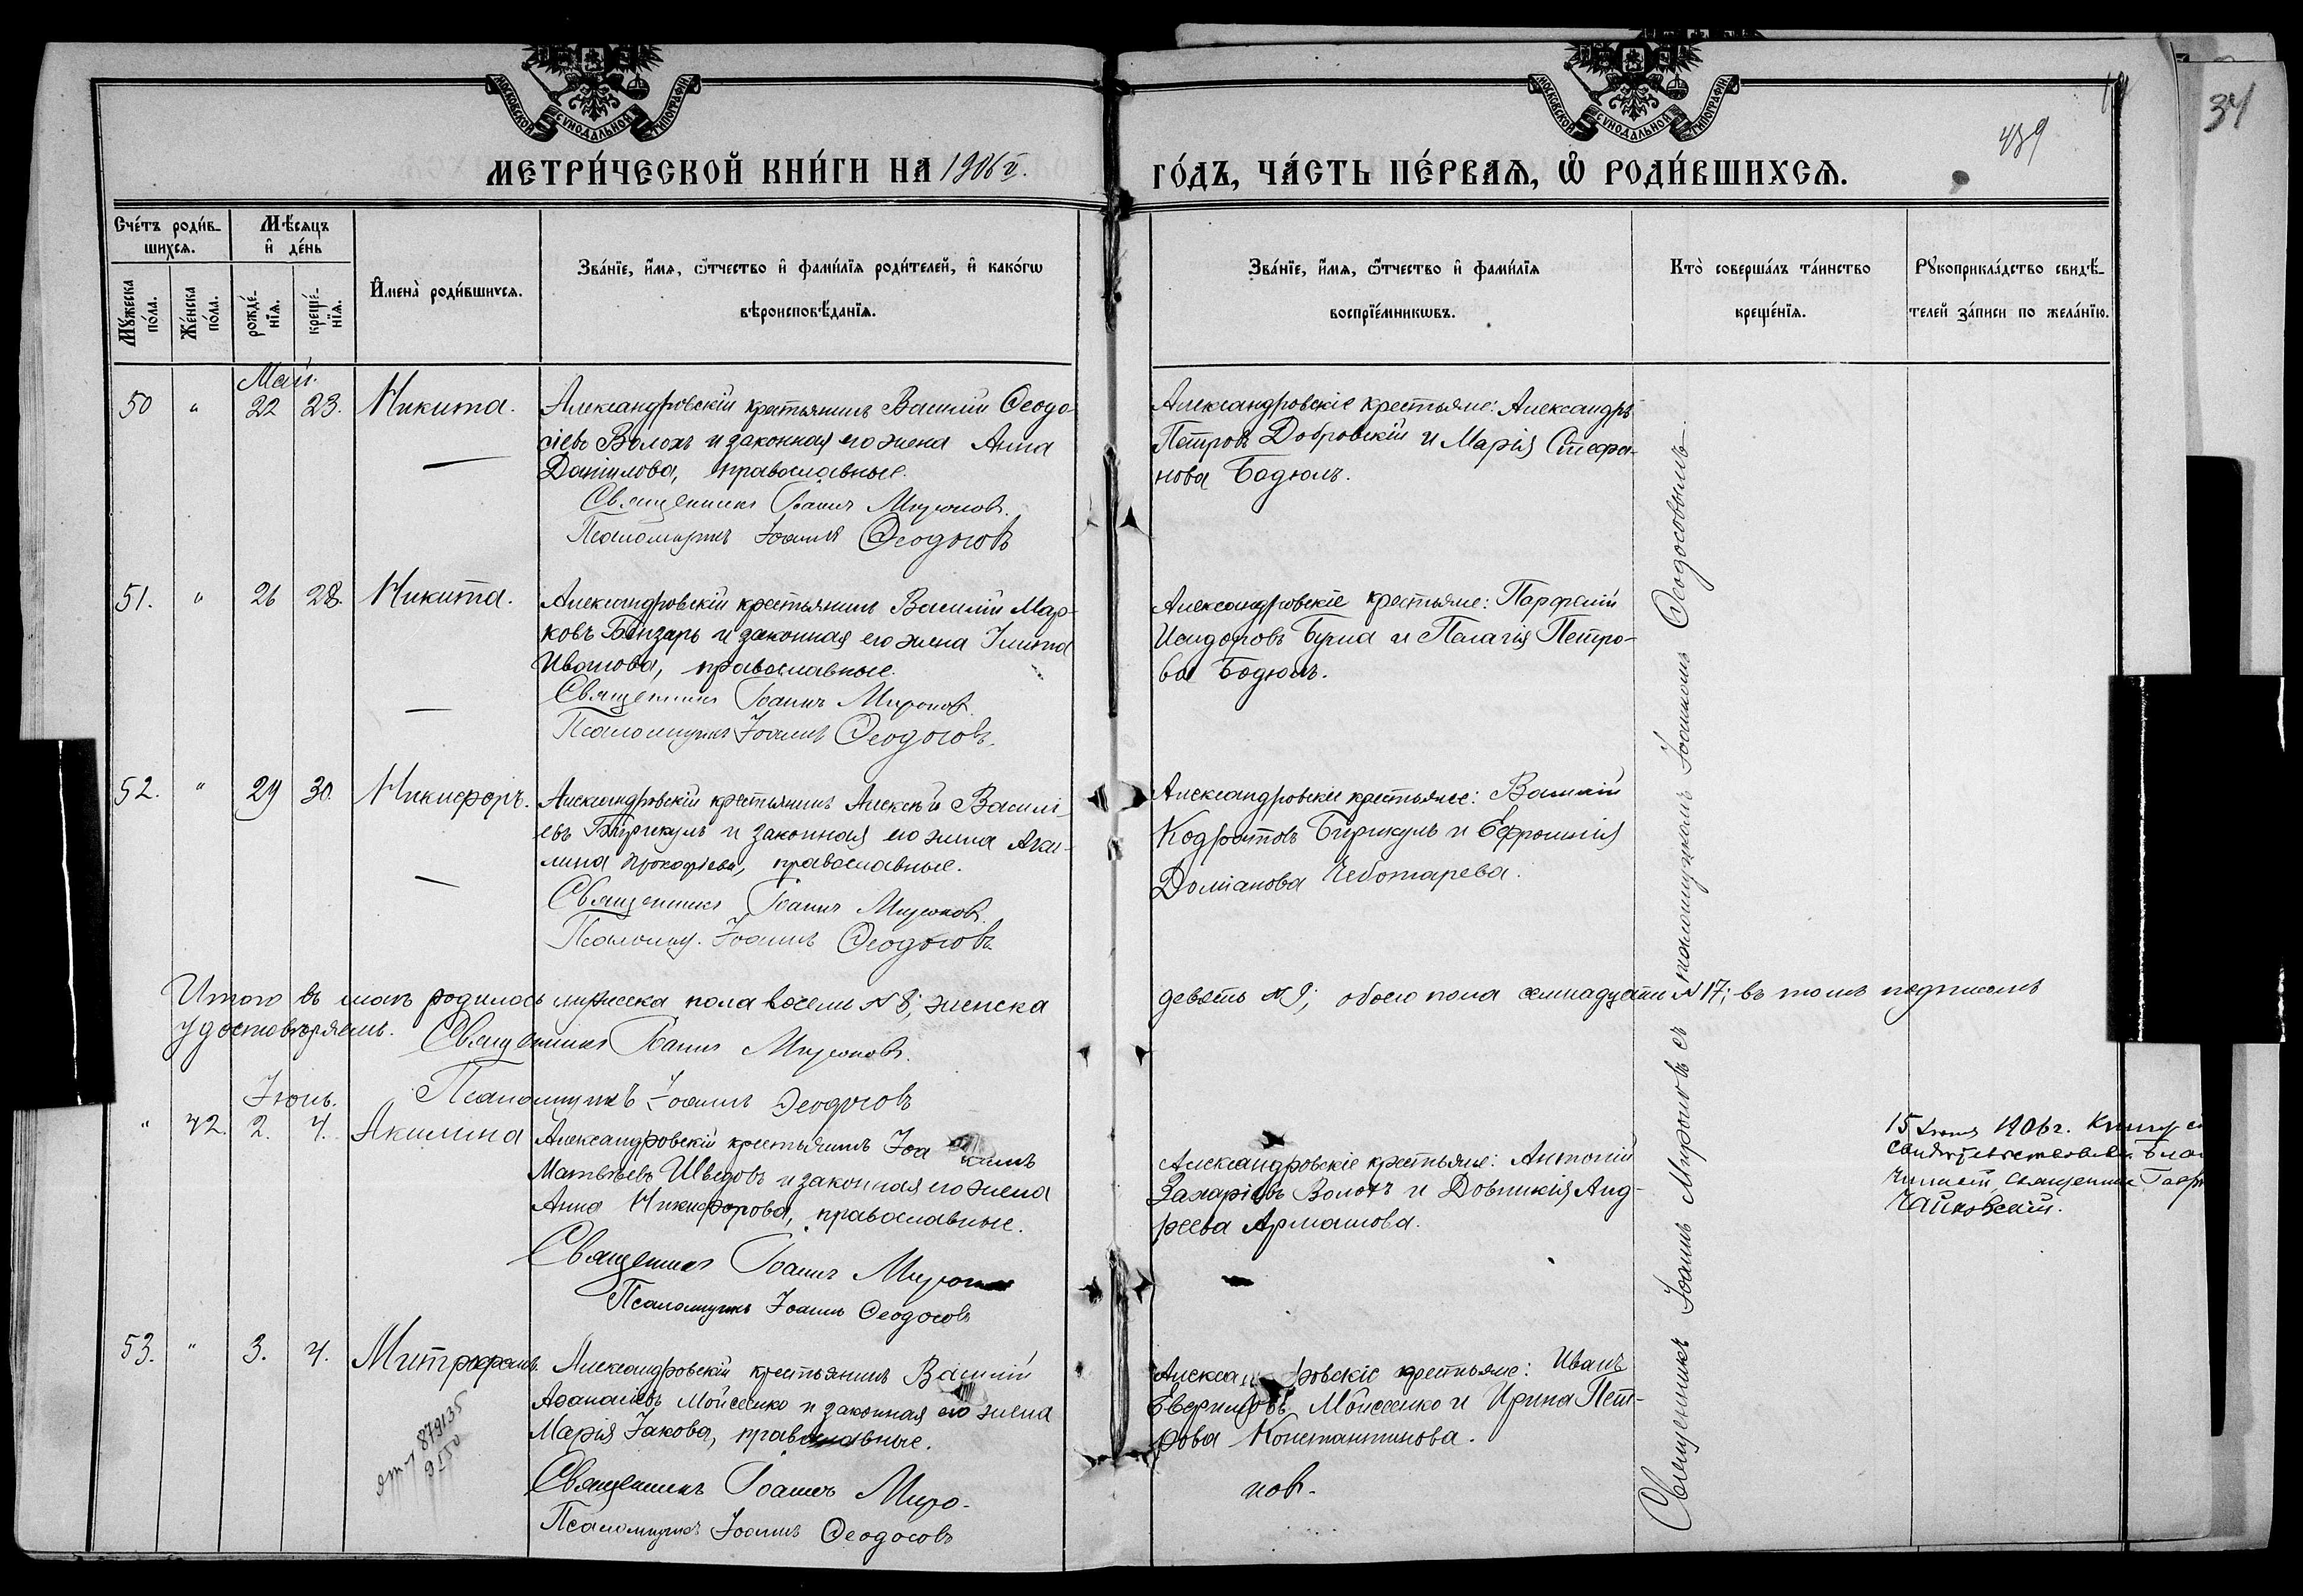 МОСКОВСКОЙ СУНОДАЛЬНОЙ ТИПОГРАФІИ
МОСКОВСКОЙ СУНОДАЛЬНОЙ ТИПОГРАФІИ
34
439
МЕТРИ́ЧЕСКОЙ КНИ́ГИ НА 1906 г.
ГО́ДЪ, ЧА́СТЬ ПЕ́РВАѦ, Ѡ҆ РОДИ́ВШИХСѦ.
Сче́тъ роди́в-
шихсѧ.
Мꙋ́жеска по́ла.
Же́нска по́ла.
Мѣ́сѧцъ
и҆ де́нь
рожде́-
нїѧ.
креще́-
нїѧ.
И҆мена̀ роди́вшихсѧ.
Зва́нїе, и҆́мѧ, ѻ҆́тчество и҆ фами́лїѧ роди́телей, и҆ како́гѡ
вѣроисповѣ́данїѧ.
Зва́нїе, и҆́мѧ, ѻ҆́тчество и҆ фами́лїѧ
воспрїе́мникѡвъ.
Кто̀ соверша́лъ та́инство
креще́нїѧ.
Рꙋкоприкла́дство свидѣ́-
телей за́писи по жела́нїю.
Май.
50 " 22 23. Никита.
Александровскій крестьянинъ Василій Ѳеодо-
сіевъ Волохъ и законная его жена Анна
Даніилова, православные.
Священникъ Іоаннъ Мироновъ.
Псаломщикъ Іоаннъ Ѳеодосовъ
Александровскіе крестьяне: Александръ
Петровъ Добровскій и Марія Стефа-
нова Бодюлъ.
51. " 26 28. Никита.
Александровскій крестьянинъ Василій Мар-
ковъ Бензарь и законная его жена
Иванова, православные.
Священникъ Іоаннъ Мироновъ.
Псаломщикъ Іоаннъ Ѳеодосовъ.
Александровскіе крестьяне: Парфеній
Исидоровъ и Пелагія Петро-
ва Бодюлъ.
52. " 29 30. Никифоръ.
Александровскій крестьянинъ Алексѣй Василі-
евъ Бирикулъ и законная его жена Аки-
лина Прокофіева, православные.
Священникъ Іоаннъ Мироновъ.
Псаломщ. Іоаннъ Ѳеодосовъ
Александровскіе крестьяне: Василій
Кодратовъ Бирикулъ и Ефросинія
Доміанова Чеботарева.
Итого въ маѣ родилось мужеска пола восемь № 8; женска
девять № 9; обоего пола семнадцать № 17; въ томъ подписомъ
удостовѣряемъ. Священникъ Іоаннъ Мироновъ.
Псаломщикъ Іоаннъ Ѳеодосовъ
Іюнь.
" 42. 2. 4. Акилина
Александровскій крестьянинъ Іоакимъ
Матвѣевъ Шведовъ и законная его жена
Анна Никифорова, православные.
Священникъ Іоаннъ Мироновъ
Псаломщикъ Іоаннъ Ѳеодосовъ
Александровскіе крестьяне: Антоній
Захаріевъ Волохъ и Домникія Анд-
реева Армашова.
15 Іюня 1906 г. Книгу
свидѣтельствовалъ Благо
чинный Священникъ
Чайковскій.
53. " 3. 4. Митрофанъ.
Александровскій крестьянинъ Василій
Аѳанасіевъ Мойсеенко и законная его жена
Марія Іакова, православные.
Священникъ Іоаннъ Миро-
новъ.
Псаломщикъ Іоаннъ Ѳеодосовъ
Александровскіе крестьяне: Иванъ
Евфимовъ Мойсеенко и Ирина Пет-
рова Константинова.
879135
9550
Священникъ Іоаннъ Мироновъ съ псаломщикомъ Іоанномъ Ѳеодосовымъ